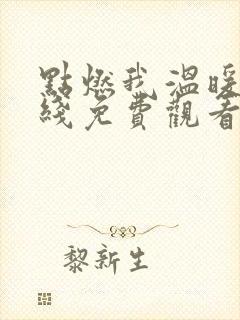 點燃我溫暖
綫免費觀看
黎新生